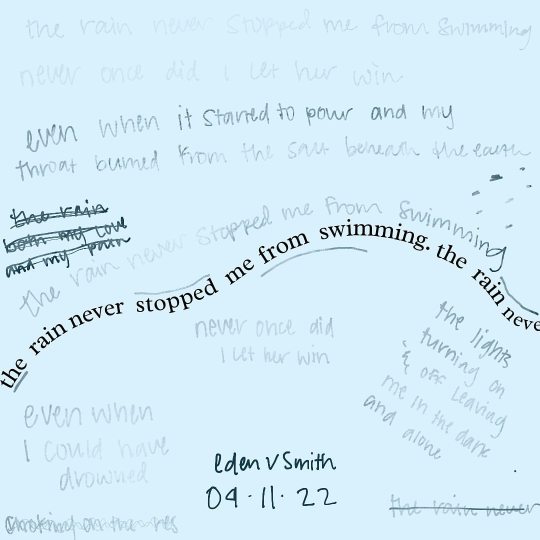 the rain never stopped me from swimming
never once did I let her win
even when it started to pour and my
throat burned from the salt beneath the earth
the rain
both my love
and my pain
the rain never stopped me from swimming
the rain never stopped me from swimming. the rain neve
never once did
I let her win
the lights
turning on
& off leaving
me in the dark
and alone
even when
I could have
drowned
eden v smith
04.11.22
the rain never